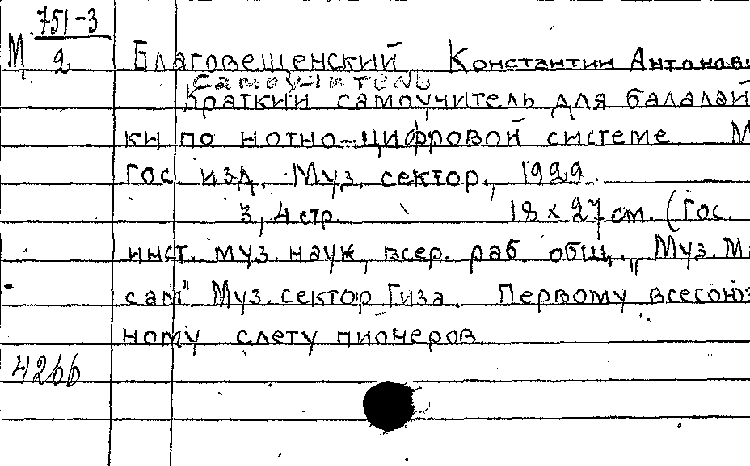 М 751-3
2
Благовещенский Константин Антонов
самоучитель
Краткий самоучитель для балалай
ки по нотно-цифровой системе М
Гос изд. Муз. сектор., 1929.
3, 4 стр. 18 × 27 см. (Гос.
инст. муз. наук, всер. раб. общ. „Муз. М
сам" Муз. сектор Гиза. Первому всесоюз
ному слету пионеров
4266